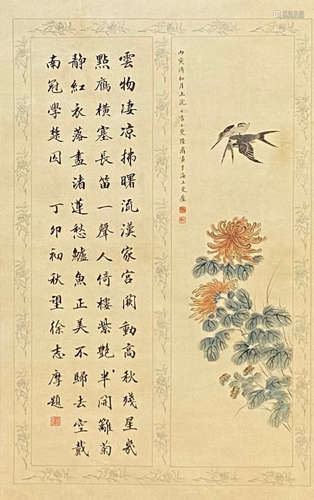 丙寅清和月上浣
雲物凄涼拂曙流漢家宮闕動高秋殘星幾
點鴈橫塞長笛一聲人倚樓紫艷半開籬菊
靜紅衣落盡渚蓮愁鱸魚正美不歸去空戴
南冠學楚囚 丁卯初秋望徐志摩題